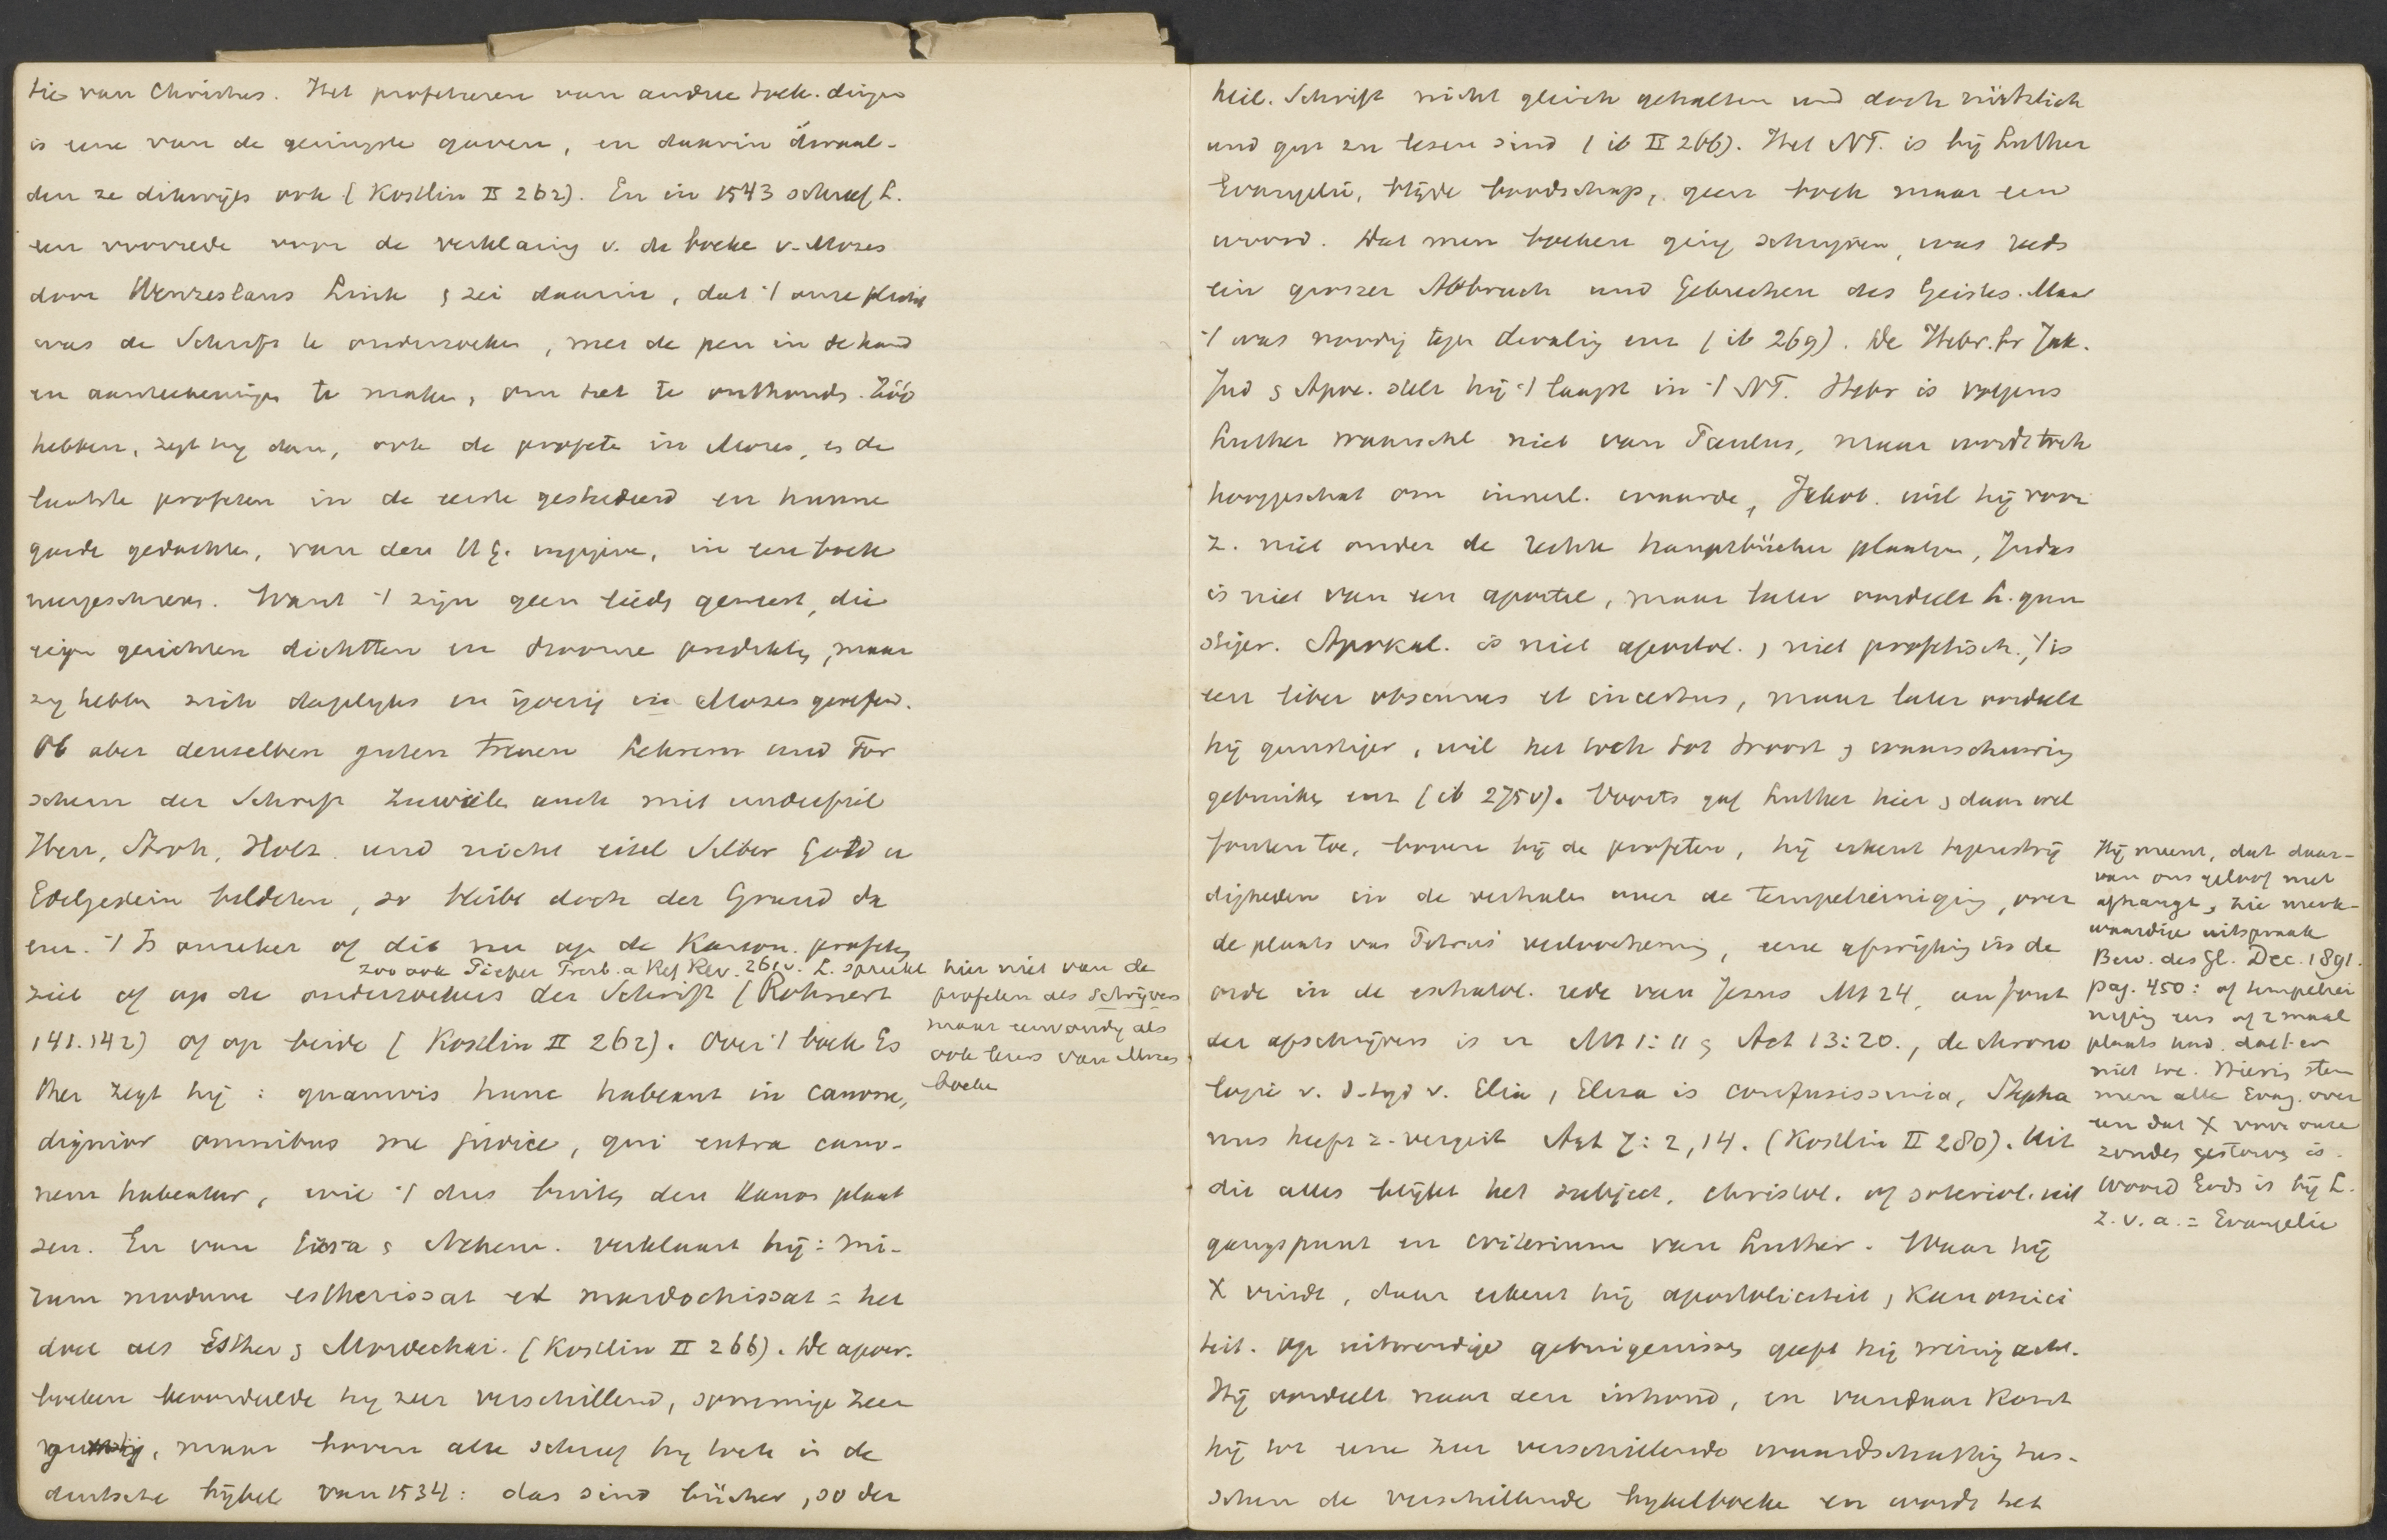 tie van Christus. Het profeteren van andere toek. dingen
is eene van de geringste gaven, en daarin dwaal-
den ze dikwijls ook (Kostlin II 262). En in 1543 schreef L.
een voorrede voor de verklaring v. de boeke v. Mozes
door Wenzeslaus Link, zei daarin, dat 't onze plicht
was de Schrift te onderzoeken, met de pen in de hand
en aanteekeningen te maken, om het te onthouden. Zóó
hebben, zegt hij dan, ook de profete in Mozes, en de
laatste profeten in de eerste gestudeerd en hunne
goede gedachten, van den H G. ingegeven, in een boek
neergeschreven. Want 't zijn geen lieds geweest, die
eigen gezichten dichtten en droomen predikten, maar
zij hebben zich dagelijks en ijverig in Mozes geoefend.
Ob aber denselben guten treuen Lehrern und For
schern der Schrift zuweilen auch mit unterfiel
Heu, Stroh, Holz und nicht eitel Silber Gold u
Edelgestein bildeten, so bleibt doch der Grund da
enz. 't Is onzeker of dit nu op de Kanon. profeten
zoo ook Pieper Presb. a Ref Rev. 261v. L. spreekt hier niet van de
ziet of op de onderzoekers der Schrift (Rohnert
profeten als schrijvers
141.142) of op beide (Kostlin II 262). Over 't boek Es
maar eenvoudig als
ook lezers van Mozes
boeken
ther zegt hij: quamvis hunc habeant in canone,
dignior omnibus me judice, qui extra cano-
nem habeatur, wie 't dus buiten den Kanon plaat
sen. En van Ezra & Nehem. verklaart hij: mi-
rum modum estherissat et mardochissat = het
doet als Esther & Mordechai. (Kostlin II 266). De apocr.
boeken beoordeelde hij zeer verschillend, sommige zeer
gunstig, maar boven alle schreef hij toch in de
duitsche bijbel van 1534: das sind bücher, so der
heil. Schrift nicht gleich gehalten und doch nützlich
und gut zu lesen sind (ib II 266). Het NT. is bij Luther
Evangelie, blijde boodschap, geen boek maar een
woord. Dat men boeken ging schrijven, was reeds
ein groszer Abbruch und Gebrechen des Geistes. Maar
't was noodig tegen dwaling enz (ib 269). De Hebr. br Jak.
Jud & Apoc. stelt hij 't laagst in 't NT. Hebr is volgens
Luther waarschl niet van Paulus, maar wordt toch
hooggeschat om innerl. waarde, Jakob. wil hij voor
z. niet onder de rechte hauptbücher plaatsen, Judas
is niet van een apostel, maar later oordeelt L. gun
stiger. Apokal. is niet apostol., niet profetisch, 't is
een liber obscurus et incertus, maar later oordeelt
hij gunstiger, wil het toch tot troost & waarschuwing
gebruiken enz (ib 275v). Voorts gaf Luther hier & daar wel
fouten toe, boven bij de profeten, hij erkent tegenstrij
digheden in de verhalen over de tempelreiniging, over
de plaats van Petrus' verloochening, eene afwijking in de
orde in de eschatol. rede van Jezus Mt 24, een fout
der afschrijvers is er Mt 1:11 & Act 13:20., de chrono
logie v. d. tijd v. Elia, Elisa is confusissima, Stepha
nus heeft z. vergist Act 7:2,14. (Kostlin II 280). Uit
dit alles blijkt het subject. christol. of soteriol. uit
gangspunt en criterium van Luther. Waar hij
X vindt, daar erkent hij apostoliciteit, Kanonici
teit. Op uitwendige getuigenissen geeft hij weinig acht.
Hij oordeelt naar den inhoud, en vandaar komt
hij tot eene zeer verschillende waardschatting tus-
schen de verschillende bijbelboeken en wordt het
Hij meent, dat daar-
van ons geloof niet
afhangt, zie merk-
waardige uitspraak
Bew. des Gl. Dec. 1891.
pag. 450: of tempelrei
niging eens of 2 maal
plaats vond. doet er
niet toe. Hierin stem
men alle Evang. over
een dat X voor onze
zonden gestorven is.
Woord Gods is bij L.
z. v. a. = Evangelie